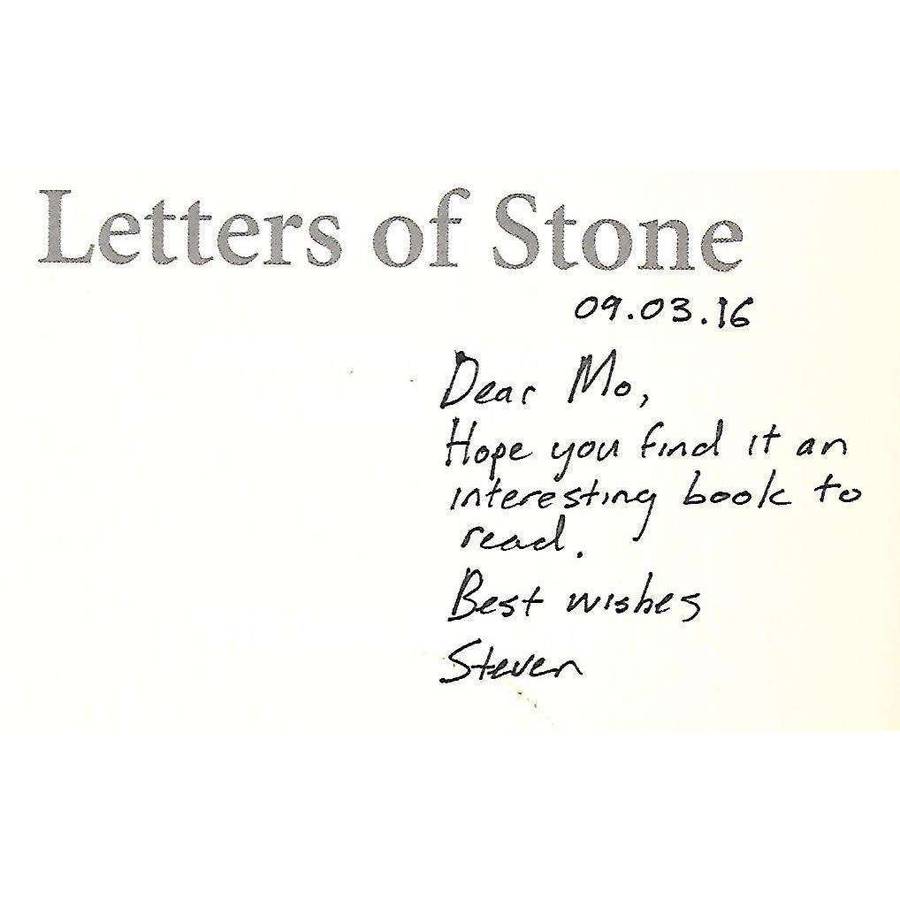 Letters of Stone
09.03.16
Dear Mo,
Hope you find it an
interesting book to
read.
Best wishes
Steven